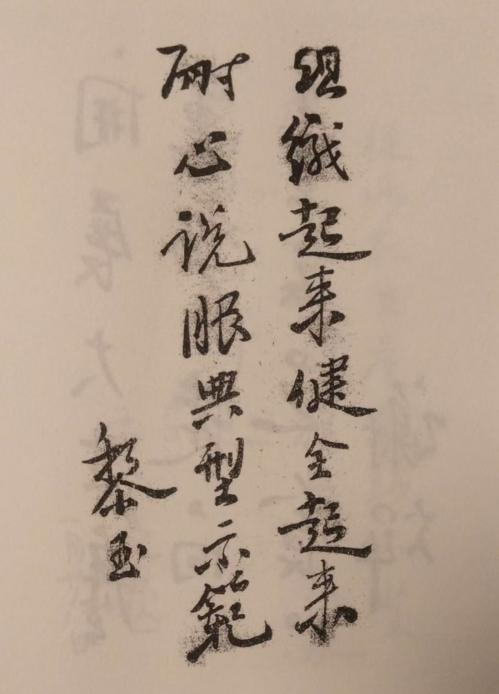 組織起来健全起来
耐心说服典型示範
黎玉